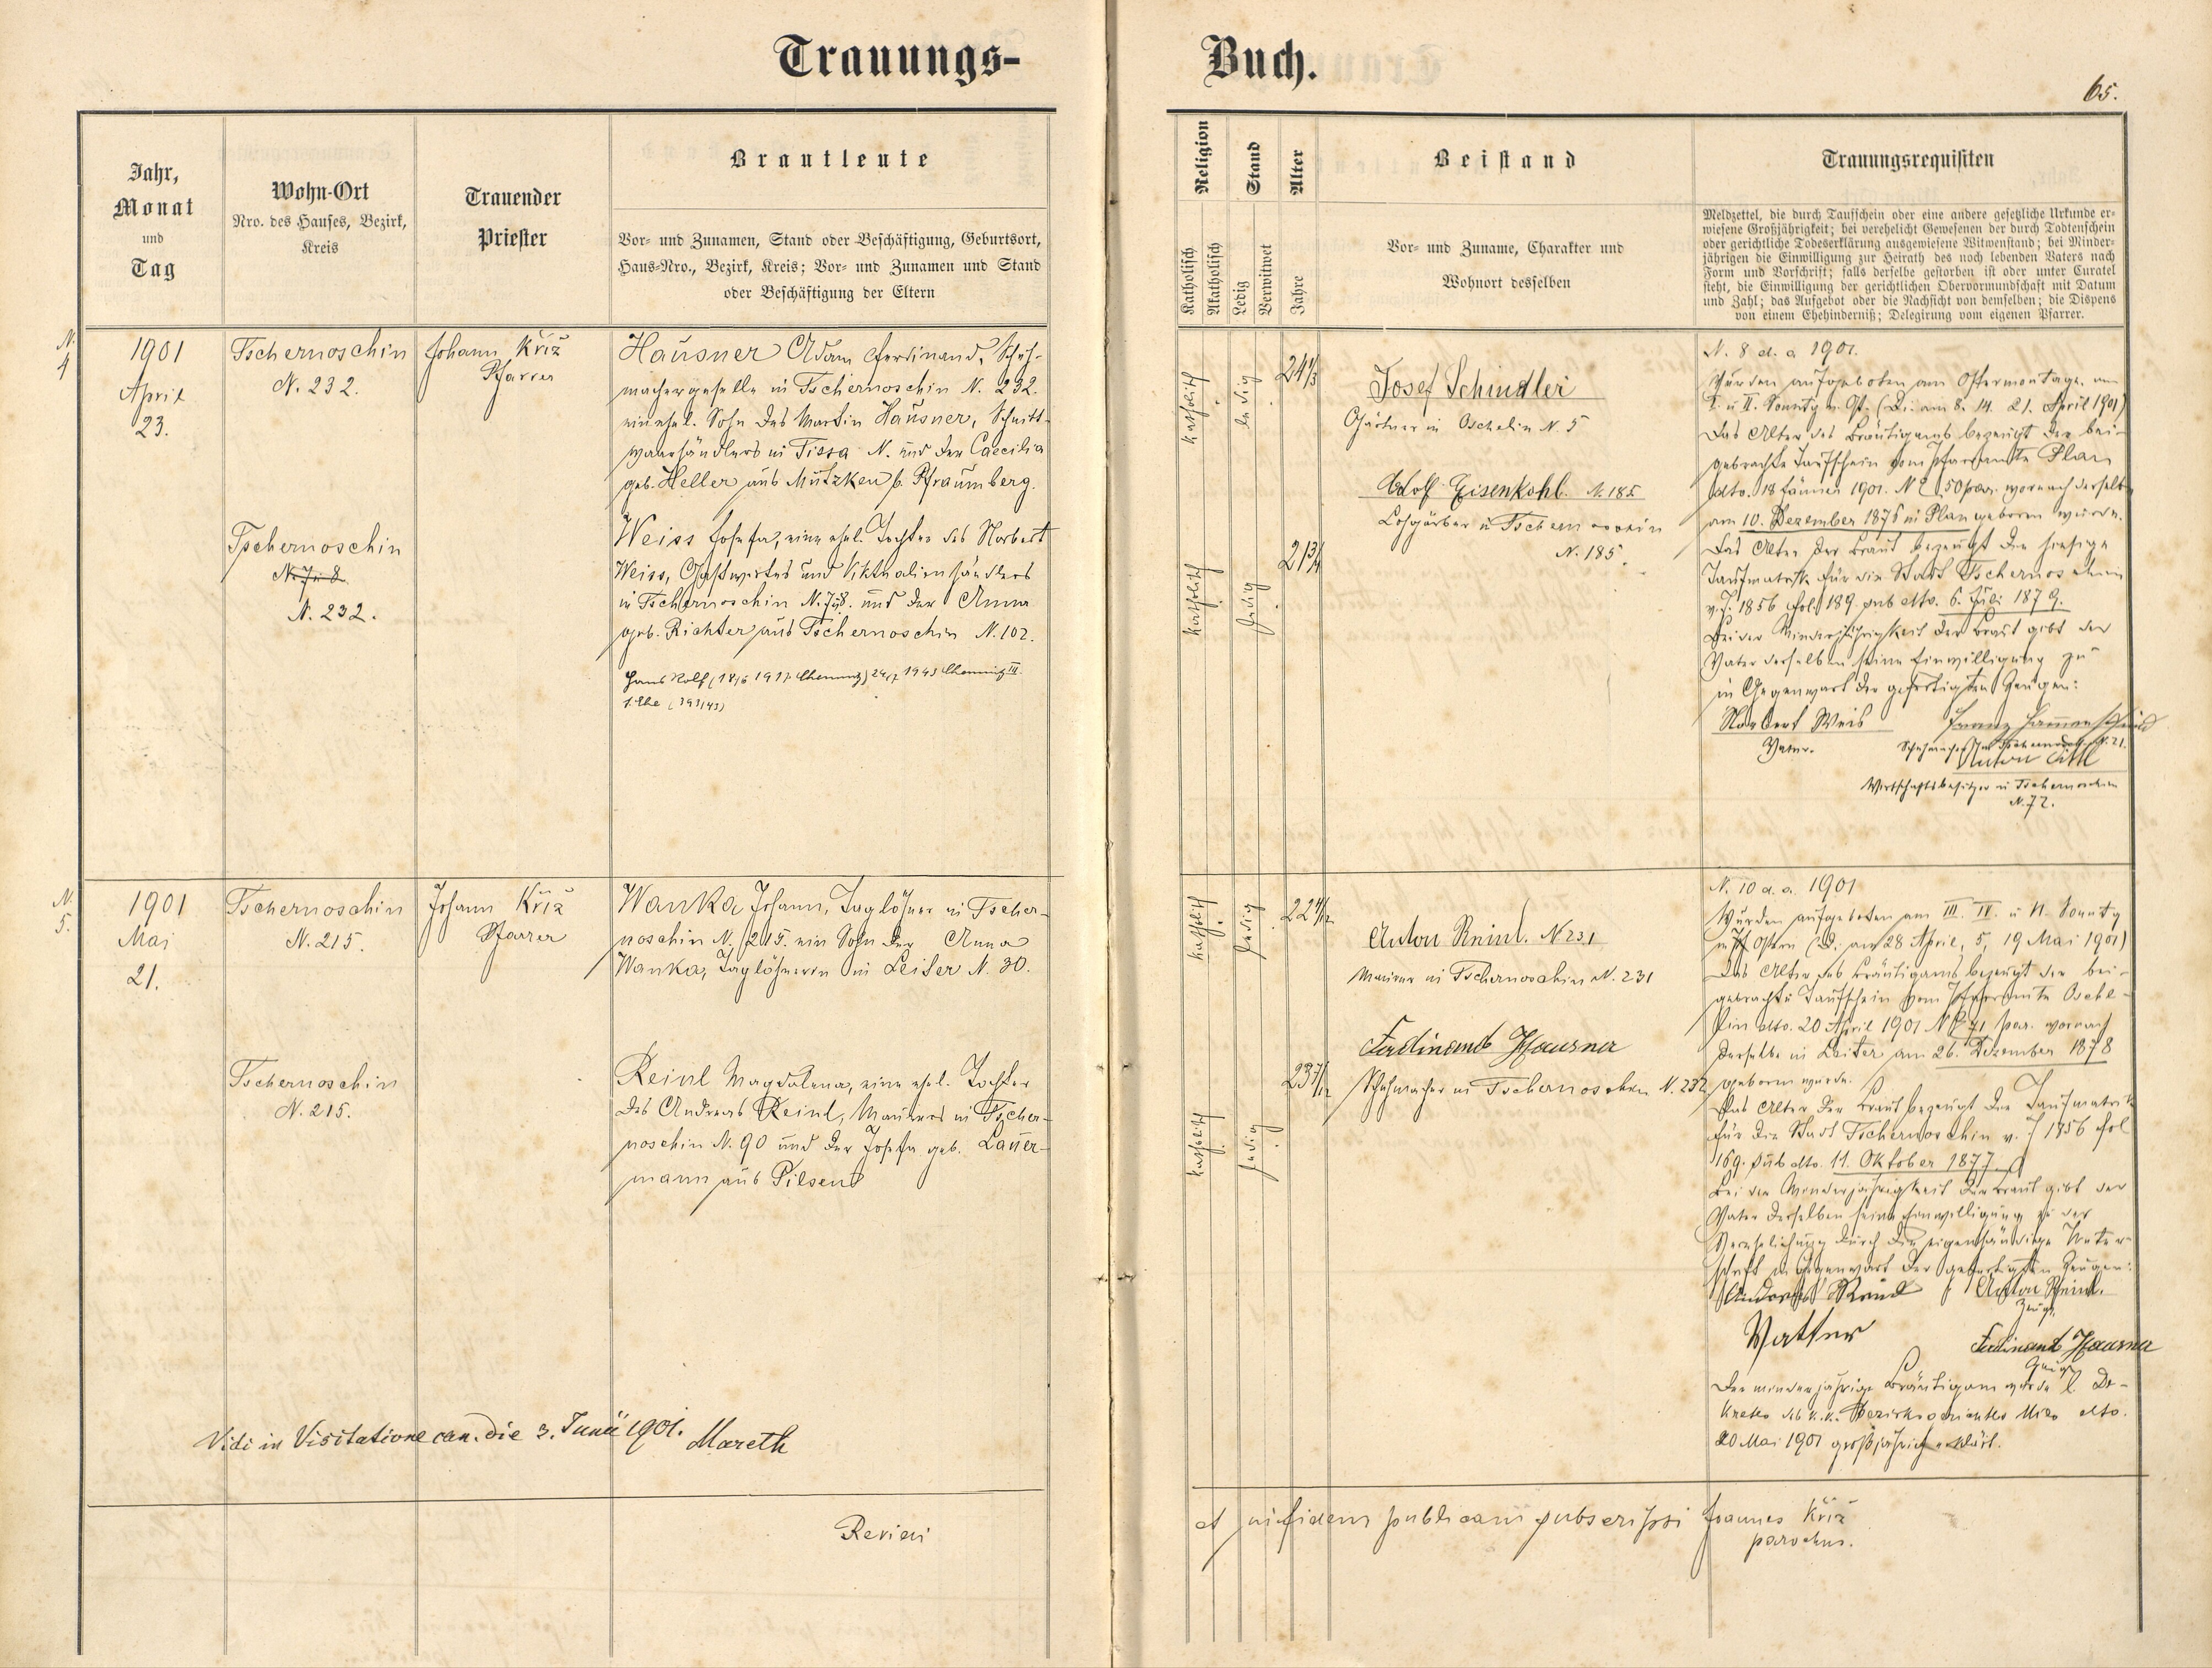 Trauungs-
Buch.
65.
Jahr,
Monat
und
Tag
Wohn-Ort
Nro. des Hauses, Bezirk,
Kreis
Trauender
Priester
Brautleute
Vor- und Zunamen, Stand oder Beschäftigung, Geburtsort,
Haus-Nro., Bezirk, Kreis; Vor- und Zunamen und Stand
oder Beschäftigung der Eltern
Religion
Katholisch
Akatholisch
Stand
Ledig
Verwitwet
Alter
Jahre
Beistand
Vor- und Zuname, Charakter und
Wohnort desselben
Trauungsrequisiten
Meldzettel, die durch Taufschein oder eine andere gesetzliche Urkunde er-
wiesene Großjährigkeit; bei verehelicht Gewesenen der durch Todtenschein
oder gerichtliche Todeserklärung ausgewiesene Witwenstand; bei Minder-
jährigen die Einwilligung zur Heirath des noch lebenden Vaters nach
Form und Vorschrift; falls derselbe gestorben ist oder unter Curatel
steht, die Einwilligung der gerichtlichen Obervormundschaft mit Datum
und Zahl; das Aufgebot oder die Nachsicht von demselben; die Dispens
von einem Ehehinderniß; Delegirung vom eigenen Pfarrer.
N.
4
1901
April
23.
Tschernoschin
N. 232.
Johann Kříž
Pfarrer
Hausner Adam Ferdinand, Schuh-
machergeselle in Tschernoschin N. 232.
ein ehel. Sohn des Martin Hausner, Schnitt-
waarhändlers in Tissa N. und der Caecilia
geb. Heller aus Mutzken b. Pfraumberg.
Tschernoschin
N. 7 u 8
N. 232.
Weiss Josefa, eine ehel. Tochter des Norbert
Weiss, Gastwirtes und Viktualienhändlers
in Tschernoschin N. 7u8. und der Anna
geb. Richter aus Tschernoschin N. 102.
1. Ehe (393/43)
katholisch
ledig
24 1/3
katholisch
ledig
21 3/4
Josef Schindler
Gärtner in Oschelin N. 5
Adolf Eisenkohl. N. 185
Lohgärber in Tschernoschin
N. 185.
N. 8 d. a 1901.
Wurden aufgeboten am Ostermontage, am
I. u II. Sonntg n. Ost. (Di. am 8. 14. 21. April 1901)
Das Alter des Bräutigams bezeugt der bei-
gebrachte Taufschein vom Pfarramte Plan
dto. 18 Jänner 1901. N 50 par. wornach derselbe
am 10. Dezember 1876 in Plan geboren wurde.
Das Alter der Braut bezeugt die hiesige
Taufmatrik für die Stadt Tschernoschin
v. J. 1856 fol. 189. sub dto. 6. Juli 1879.
Bei der Minderjährigkeit der Braut gibt der
Vater derselben seine Einwilligung zu
in Gegenwart der gefertigten Zeugen:
Norbert Weis
Vater.
Franz
Schuhmacher in Tschernoschin N. 21.
Anton
Wirtschaftsbesitzer in Tschernoschin
N. 72.
N.
5.
1901
Mai
21.
Tschernoschin
N. 215.
Johann Kříž
Pfarrer
Wanka Johann, Taglöhner in Tscher-
noschin N. 215. ein Sohn der Anna
Wanka, Taglöhnerin in Leiter N. 30.
Tschernoschin
N. 215.
Reinl Magdalena, eine ehel. Tochter
des Andreas Reinl, Maurers in Tscher-
noschin N. 90 und der Josefa geb. Lauer-
mann aus Pilsen
katholisch
ledig
katholisch
ledig
23 7/12
Anton Reinl. N 231
Maurer in Tschernoschin N. 231
Ferdinand Hausner
Schuhmacher in Tschernoschin N. 232
N. 10 d. a. 1901
Wurden aufgeboten am III. IV. u VI. Sonntg
n Ostern (Di. am 28 April, 5, 19 Mai 1901)
Das Alter des Bräutigams bezeugt der bei-
gebrachte Taufschein vom Pfarramte Osche-
lin dto. 20 April 1901 N 71 par. wornach
derselbe in Leiter am 26. Dezember 1878
geboren wurde.
Das Alter der Braut bezeugt die Taufmatrik
für die Stadt Tschernoschin v. J 1856 fol
169. sub dto. 11. Oktober 1877.
Bei der Minderjährigkeit der Braut gibt der
Vater derselben seine Einwilligung zu der
Verehelichung durch die eigenhändige Unter-
schrift in Gegenwart der gefertigten Zeugen:
Andreas Reinl
Vatter
Anton Reinl.
Zeuge
Ferdinand Hausner
Zeuge
Der minderjährige Bräutigam wurde l. De-
kretes des k.k. Bezirksgerichtes Mies dto.
20 Mai 1901 großjährig erklärt.
Vidi in Visitatione can. die 3. Junii 1901. Mareth
Revidi
et in fidem publicam subscripsi Joannes Kříž
parochus.